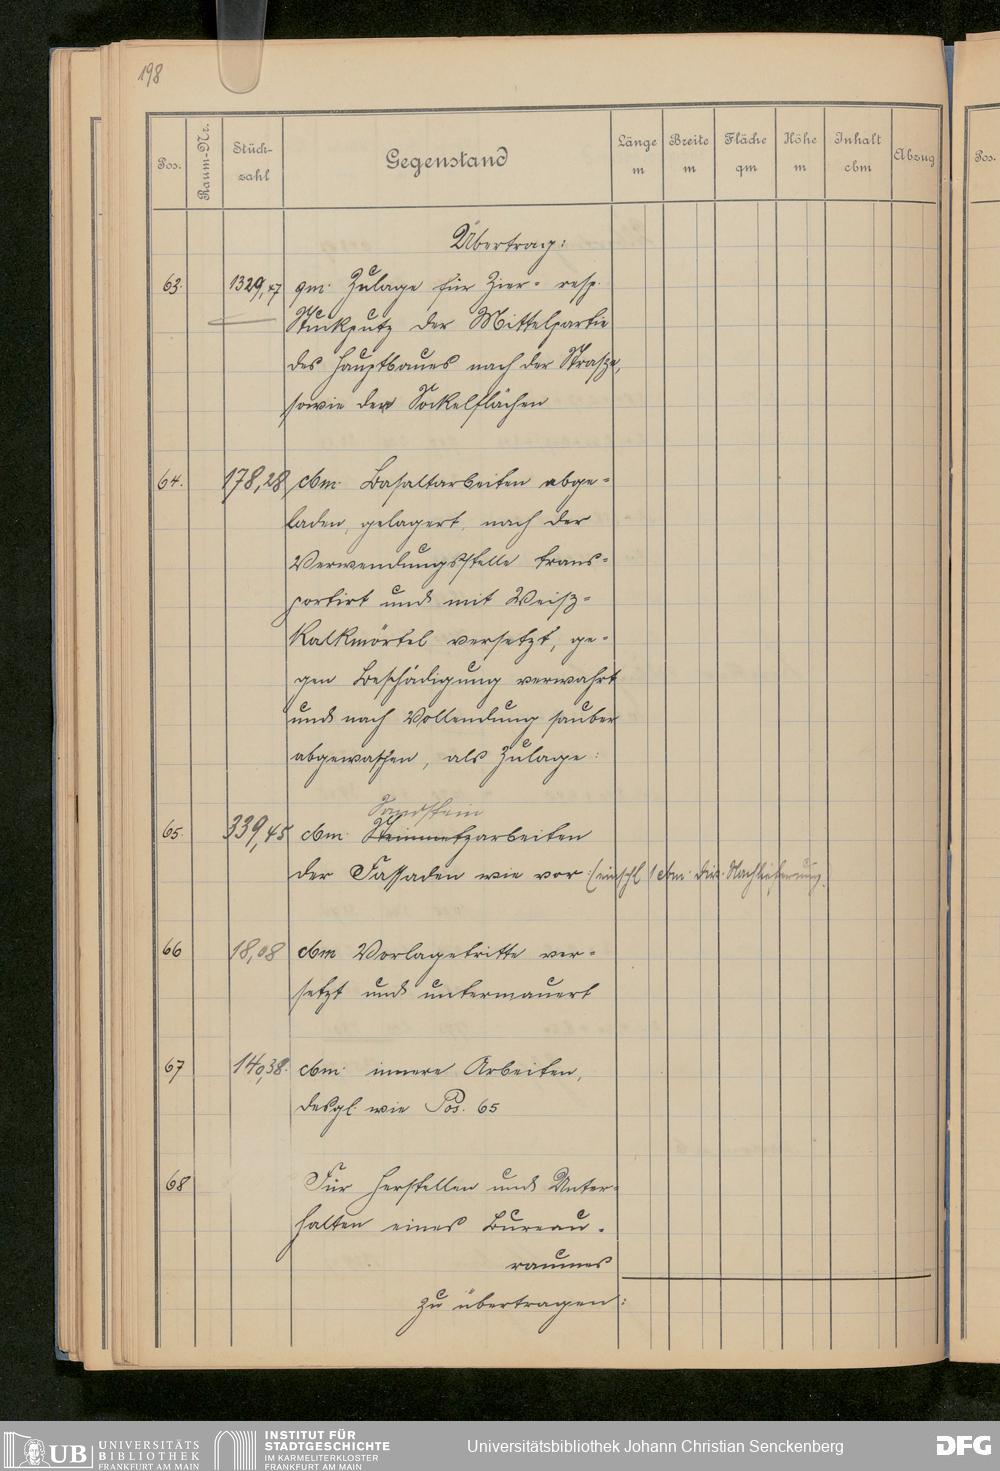 198
Pos.
Raum-Nr.
Stück-
zahl
Gegenstand
Länge
m
Breite
m
Fläche
qm
Höhe
m
Inhalt
cbm
Abzug
Pos.
Übertrag:
63. 1329,47 qm. Zulage für Zier- resp.
Stuckputz der Mittelpartie
des Hauptbaues nach der Straße,
sowie der Sockelflächen
64. 178,28 cbm. Basaltarbeiten abge-
laden, gelagert, nach der
Verwendungsstelle trans-
portirt und mit Weiß-
kalkmörtel versetzt, ge-
gen Beschädigung verwahrt
und nach Vollendung sauber
abgewaschen, als Zulage:
Sandstein
65. 339,45 cbm. Steinmetzarbeiten
der Fassaden wie vor. (einschl 1 cbm. div. Nachlieferung.)
66 18,08 cbm Vorlagetritte ver-
setzt und untermauert
67 140,38. cbm. innere Arbeiten,
desgl. wie Pos. 65
68 Für Herstellen und Unter-
halten eines Bureau-
raumes
zu übertragen:
UB UNIVERSITÄTS
BIBLIOTHEK
FRANKFURT AM MAIN
INSTITUT FÜR
STADTGESCHICHTE
IM KARMELITERKLOSTER
FRANKFURT AM MAIN
Universitätsbibliothek Johann Christian Senckenberg
DFG